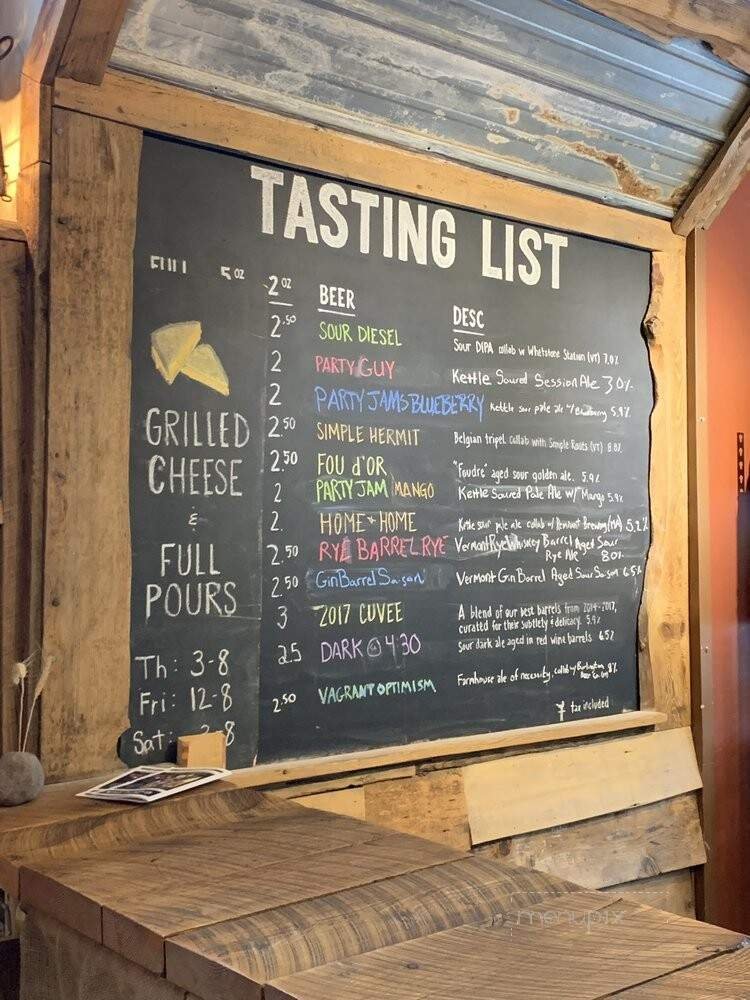 TASTING LIST
FULL 5 OZ 2 OZ BEER DESC
2.50 SOUR DIESEL Sour DIPA collab w Whetstone Station (VT) 7.0%
2 PARTY GUY Kettle Soured Session Ale 3.0%
2 PARTY JAMS BLUEBERRY Kettle sour pale ale w/ 5.9%
2.50 SIMPLE HERMIT Belgian tripel collab with Simple Roots (VT) 8.8%
2.50 FOU d'OR "Foudre" aged sour golden ale. 5.9%
2 PARTY JAM MANGO Kettle Soured Pale Ale w/ Mango 5.9%
2. HOME + HOME Kettle sour pale ale collab w/ Brewing (MA) 5.2%
2.50 RYE BARREL RYE Vermont Rye Whiskey Barrel Aged Sour
Rye Ale 8.0%
2.50 Gin Barrel Saison Vermont Gin Barrel Aged Sour Saison 6.5%
3 2017 CUVEE A blend of our best barrels from 2014-2017,
curated for their subtlety & delicacy. 5.9%
2.5 DARK @ 4:30 sour dark ale aged in red wine barrels 6.5%
2.50 VAGRANT OPTIMISM Farmhouse ale of necessity, collab w/ Burlington
Beer Co. (VT) 8%
tax included
GRILLED
CHEESE
&
FULL
POURS
Th: 3-8
Fri: 12-8
Sat: -8
menupix